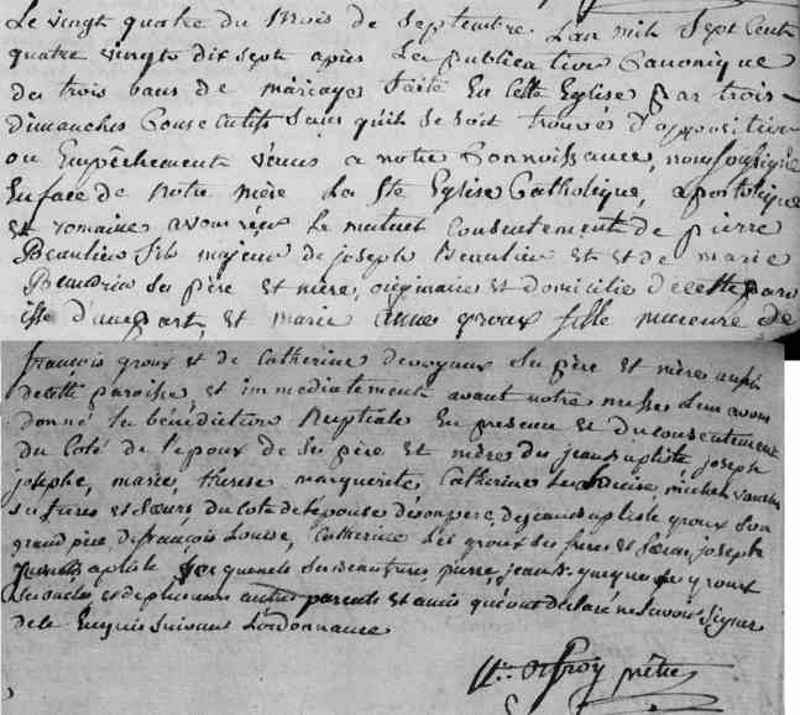 Le vingt quatre du mois de septembre. L'an mil sept cent
quatre vingts dix sept après La publication Canonique
des trois bans de mariages faite En cette Eglise par trois
dimanches Consecutifs sans qu'il se soit trouvés d'opposition
ou Empêchement venus a notre Connoissance, nous soussigné
En face de notre mère La Ste Eglise Catholique, apostolique
et romaine avons reçu Le mutuel Consentement de pierre
Beaulieu fils majeur de joseph Beaulieu et et de marie
Beaudrie ses père et mère, originaire et domicilie de cette paro
isse d'une part, et marie anne groux fille mineure de
françois groux et de Catherine ses père et mère aussi
de cette paroisse, et immediatement avant notre messe Leur avons
donné La bénédiction Nuptiale En presence et du consentement
du Coté de l'epoux de ses père et mère de jean baptiste joseph
josephe, marie, therese marguerite Catherine michel
ses freres et soeurs du cote de l'epouse de son pere, de jean baptiste groux son
grand père, de françois Louise, Catherine Les groux ses freres et soeurs, joseph
ses beaux freres, pierre, jean Bte groux
ses oncles et de plusieurs autres parents et amis qui ont declaré ne savoir signer
de ce Enquis suivant L'ordonnance
prêtre